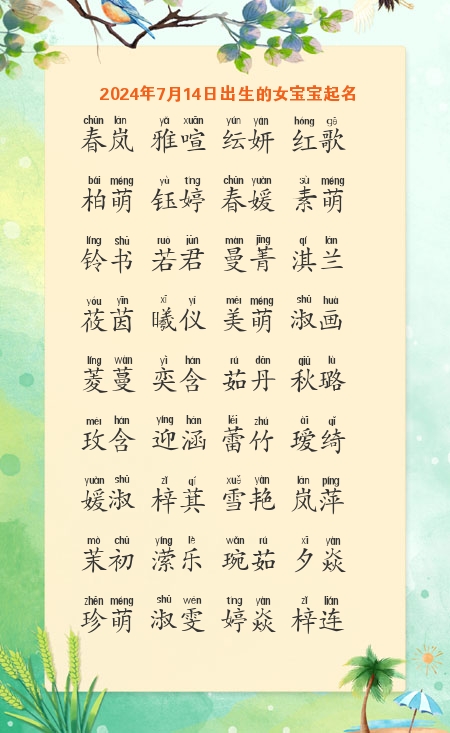 2024年7月14日出生的女宝宝起名
chūn lán yǎ xuān yún yán hóng gē
春岚 雅喧 纭妍 红歌
bǎi méng yù tíng chūn yuàn sù méng
柏萌 钰婷 春媛 素萌
líng shū ruò jūn màn jīng qí lán
铃书 若君 曼菁 淇兰
yóu yīn xī yí měi méng shū huà
莜茵 曦仪 美萌 淑画
líng wàn yì hán rú dān qiū lù
菱蔓 奕含 茹丹 秋璐
méi hán yíng hán lěi zhú ài qǐ
玫含 迎涵 蕾竹 瑷绮
yuàn shū zǐ qí xuě yàn lán píng
媛淑 梓萁 雪艳 岚萍
mò chū yíng lè wǎn rú xī yàn
茉初 潆乐 琬茹 夕焱
zhēn méng shū wén tíng yàn zǐ lián
珍萌 淑雯 婷焱 梓连